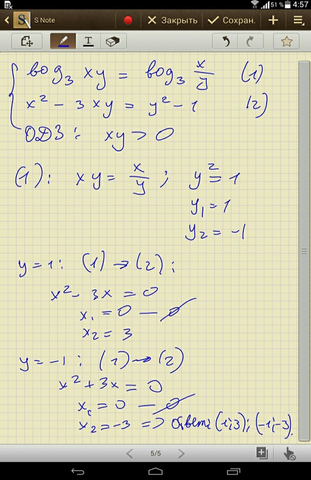 51% 4:57
S Note Закрыть Сохран.
log₃ xy = log₃ x/y (1)
x² - 3xy = y² - 1 (2)
ОДЗ: xy > 0
(1): xy = x/y ; y² = 1
y₁ = 1
y₂ = -1
y = 1: (1) → (2):
x² - 3x = 0
x₁ = 0 — ø
x₂ = 3
y = -1: (1) → (2)
x² + 3x = 0
x₁ = 0 — ø
x₂ = -3 => Ответ: (1;3); (-1;-3).
5/5